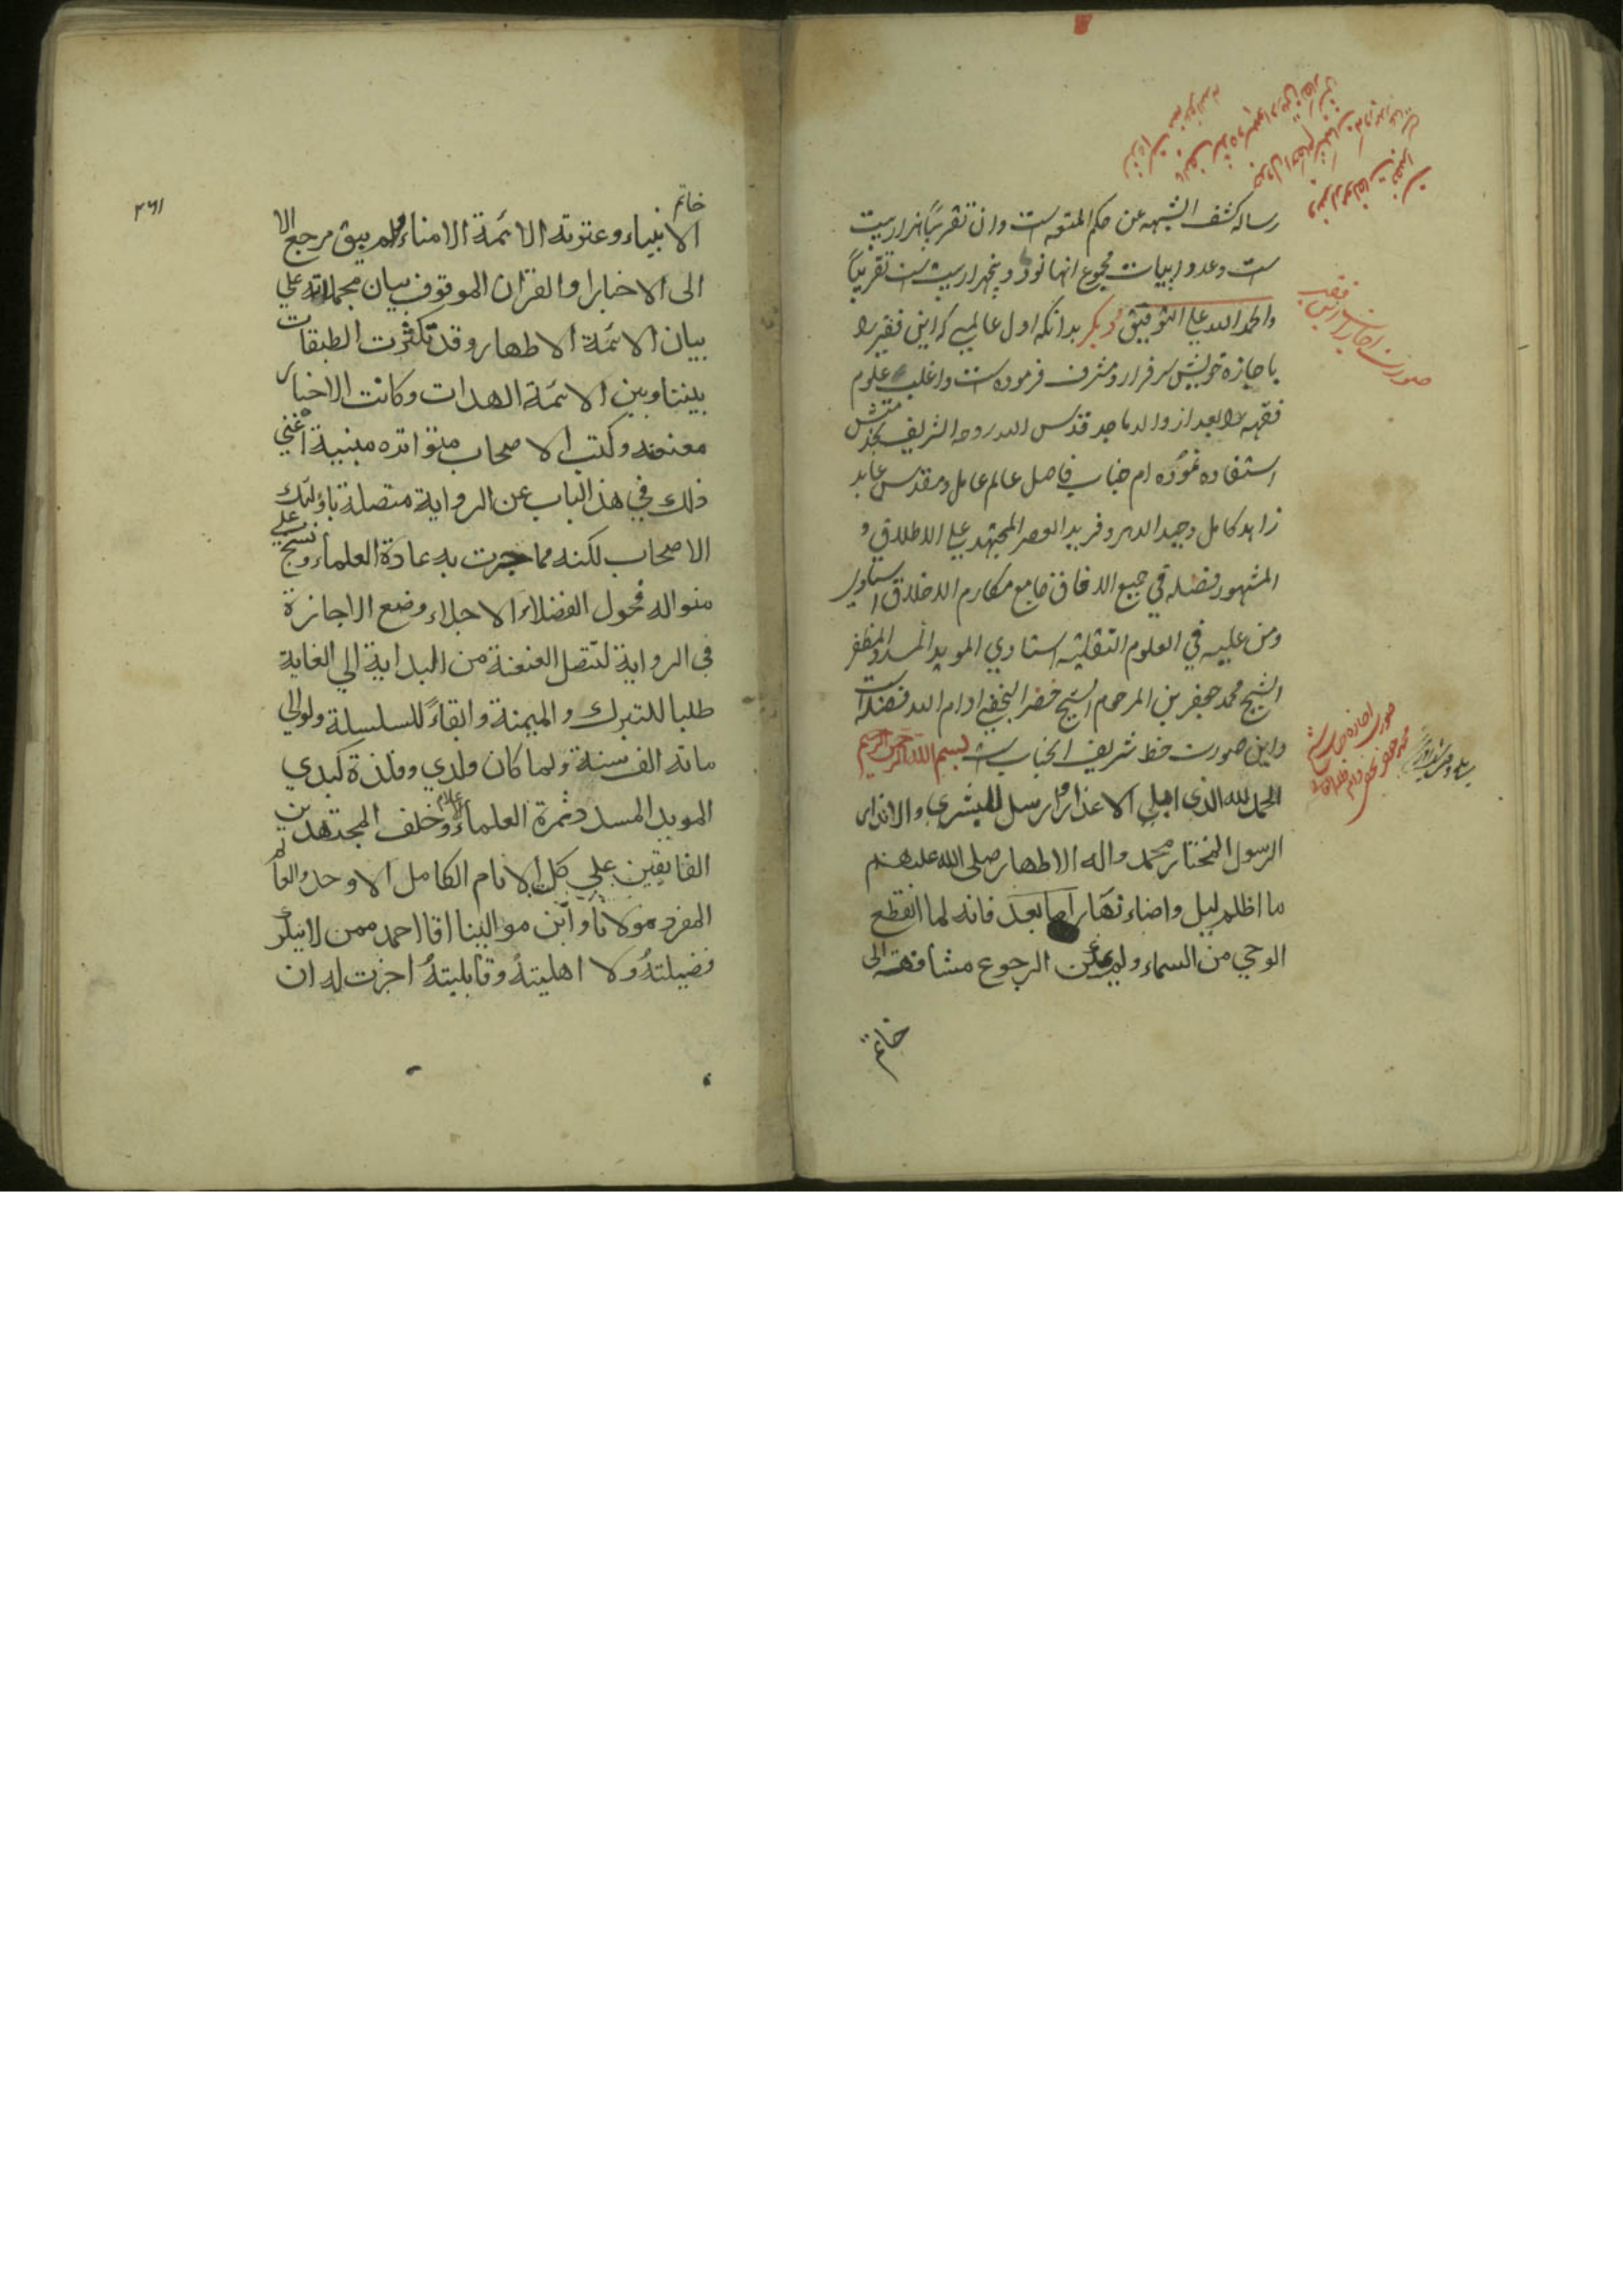 رساله کشف الشبهه عن حکم المتعه است وان تقریباً هزار بیت
ست وعدد ابیات مجموع انها نود و پنجهزار بیت ست تقریباً
والحمد لله علی التوفیق دیگر بدانکه اول عالمی که این فقیر را
باجازه خویش سرفراز و مشرف فرموده است واغلب علوم
فقهیه را بعد از والد ماجد قدس الله روحه الشریف بخدمتش
استفاده نموده ام جناب فاضل عالم عامل و مقدس عابد
زاهد کامل وحید الدهر وفرید العصر المجتهد علی الاطلاق و
المشهور فضله فی جمیع الافاق جامع مکارم الاخلاق استادی
ومن علیه فی العلوم النقلیه استنادی الموید المسدد المظفر
الشیخ محمد جعفر بن المرحوم الشیخ خضر النجفی ادام الله فضله است
واین صورت خط شریف انجناب ست بسم الله الرحمن الرحیم
الحمد لله الذی ابلی الاعذار وارسل للبشری والانذار
الرسول المختار محمد واله الاطهار صلی الله علیهم
ما اظلم لیل واضاء نهار اما بعد فانه لما انقطع
الوحی من السماء ولم یمکن الرجوع مشافهة الی
خاتم
صورت اجازات
صورت اجازه جناب شیخ
محمد جعفر نجفی دام ظله
۲۶۱
خاتم
الانبیاء وعترته الائمة الامناء فلم یبق مرجع الا
الی الاخبار او القران الموقوف بیان مجملاته علی
بیان الائمة الاطهار وقد تکثرت الطبقات
بیننا وبین الائمة الهدات وکانت الاخبار
معنعنه وکتب الاصحاب متواتره مبنیة اغنی
ذلک فی هذ الباب عن الروایة متصلة باولئک
الاصحاب لکنه مما جرت به عادة العلماء ونسج علی
منواله فحول الفضلاء الاجلاء وضع الاجازة
فی الروایة لتتصل العنعنة من البدایة الی الغایة
طلبا للتبرک والمیمنة وابقاءً للسلسلة ولو الی
مائة الف سنة ولما کان ولدی وفلذة کبدی
الموید المسدد ثمرة العلماء الاعلام وخلف المجتهدین
الفایقین علی کل الانام الکامل الاوحد والعالم
المفرد مولانا وابن موالینا اقا احمد ممن لا ینکر
فضیلتهُ ولا اهلیتهُ وقابلیتهُ اجزت له ان